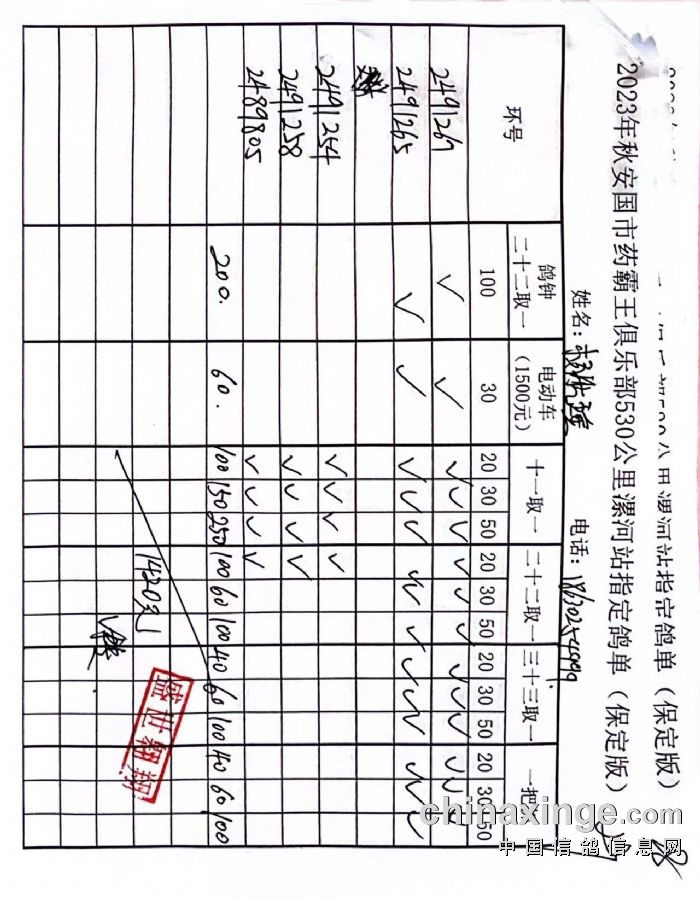 公里漯河站指定鸽单（保定版）
2023年秋安国市药霸王俱乐部530公里漯河站指定鸽单（保定版）
姓名： 电话：
环号 鸽钟 二十二取一 电动车（1500元） 十一取一 二十二取一 三十三取一 一把
100 30 20 30 50 20 30 50 20 30 50 20 30 50
2491267 ✓ ✓ ✓ ✓ ✓ ✓ ✓ ✓ ✓ ✓ ✓ ✓ ✓ ✓
2491265 ✓ ✓ ✓ ✓ ✓ ✓ ✓ ✓ ✓ ✓ ✓ ✓ ✓ ✓
2491254 ✓ ✓ ✓ ✓
2491258 ✓ ✓ ✓ ✓
2489805 ✓ ✓ ✓ ✓
200. 60. 100 150 250 100 60 100 40 60 100 40 60 100
1420元
盛世翱翔
chinaxinge.com
中国信鸽信息网